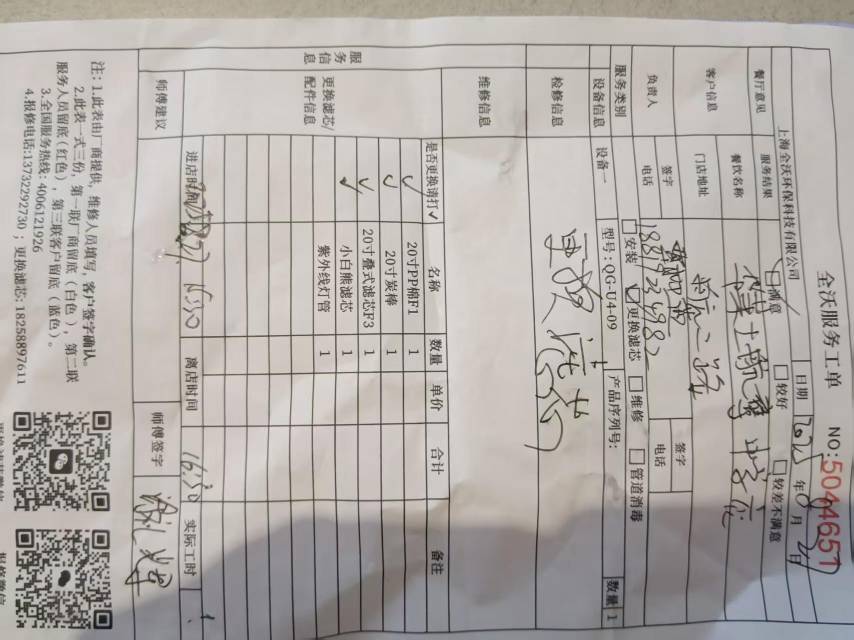 全沃服务工单
NO:5044651
上海全沃环保科技有限公司 日期 年 月 日
餐厅意见 服务结果 满意 较好 较差不满意
客户信息 餐饮名称
门店地址
负责人 签字 签字
电话 电话
服务类别 安装 更换滤芯 维修 管道消毒
设备信息 设备一 型号:QG-U4-09 产品序列号: 数量 1
检修信息 更换滤芯
维修信息
服务信息
更换滤芯/配件信息
是否更换请打✓ 名称 数量 单价 合计 备注
✓ 20寸PP棉F1 1
✓ 20寸炭棒 1
✓ 20寸叠式滤芯F3 1
✓ 小白熊滤芯 1
紫外线灯管 1
进店时间 15:30 离店时间 16:30 实际工时
师傅建议 师傅签字
注:1.此表由厂商提供,维修人员填写,客户签字确认。
2.此表一式三份,第一联厂商留底(白色),第二联
服务人员留底(红色),第三联客户留底(蓝色)。
3.全国服务热线:4006121926
4.报修电话:13732292730;更换滤芯:18258897611